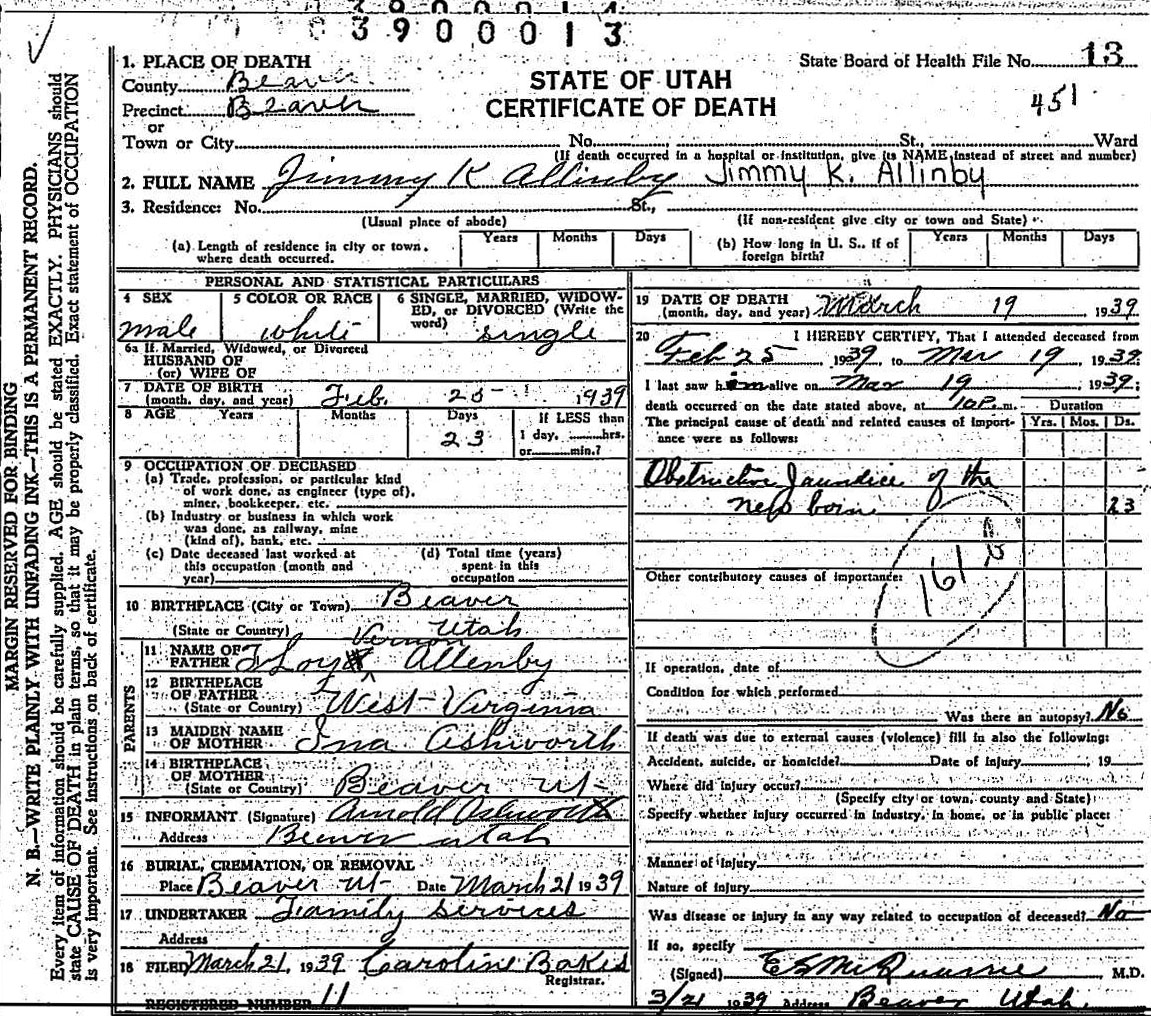 3900013
1. PLACE OF DEATH
County Beaver
Precinct Beaver
or
Town or City
State Board of Health File No. 13
STATE OF UTAH
CERTIFICATE OF DEATH
451
No. St., Ward
(If death occurred in a hospital or institution, give its NAME instead of street and number)
2. FULL NAME Jimmy K Allinby Jimmy K. Allinby
3. Residence: No. St.,
(Usual place of abode) (If non-resident give city or town and State)
(a) Length of residence in city or town where death occurred. Years Months Days
(b) How long in U. S., if of foreign birth? Years Months Days
PERSONAL AND STATISTICAL PARTICULARS
4 SEX male
5 COLOR OR RACE white
6 SINGLE, MARRIED, WIDOWED, or DIVORCED (Write the word) single
6a If Married, Widowed, or Divorced
HUSBAND OF
(or) WIFE OF
7 DATE OF BIRTH
(month, day, and year) Feb. 25 1939
8 AGE Years Months Days If LESS than
23 1 day, hrs.
or min.?
9 OCCUPATION OF DECEASED
(a) Trade, profession, or particular kind
of work done, as engineer (type of),
miner, bookkeeper, etc.
(b) Industry or business in which work
was done, as railway, mine
(kind of), bank, etc.
(c) Date deceased last worked at
this occupation (month and
year)
(d) Total time (years)
spent in this
occupation
10 BIRTHPLACE (City or Town) Beaver
(State or Country) Utah
Vernon
11 NAME OF
FATHER Loy Allenby
12 BIRTHPLACE
OF FATHER
(State or Country) West-Virginia
13 MAIDEN NAME
OF MOTHER Ina Ashworth
14 BIRTHPLACE
OF MOTHER
(State or Country) Beaver Ut-
PARENTS
15 INFORMANT (Signature) Arnold Ashworth
Address Beaver Utah
16 BURIAL, CREMATION, OR REMOVAL
Place Beaver Ut- Date March 21 1939
17 UNDERTAKER Family Services
Address
18 FILED March 21, 1939 Caroline Bakes
Registrar.
REGISTERED NUMBER 11
19 DATE OF DEATH
(month, day, and year) March 19 1939
20 I HEREBY CERTIFY, That I attended deceased from
Feb 25 1939 to Mar 19 1939
I last saw him alive on Mar 19, 1939;
death occurred on the date stated above, at 10 P. m. Duration
The principal cause of death and related causes of importance were as follows: Yrs. Mos. Ds.
Obstructive Jaundice of the
new born 23
161
Other contributory causes of importance:
If operation, date of
Condition for which performed
Was there an autopsy? No
If death was due to external causes (violence) fill in also the following:
Accident, suicide, or homicide? Date of injury , 19
Where did injury occur?
(Specify city or town, county and State)
Specify whether injury occurred in industry, in home, or in public place:
Manner of injury
Nature of injury
Was disease or injury in any way related to occupation of deceased? No
If so, specify
(Signed) M.D.
3/21 1939 Address Beaver Utah.
MARGIN RESERVED FOR BINDING
N. B.—WRITE PLAINLY WITH UNFADING INK—THIS IS A PERMANENT RECORD.
Every item of information should be carefully supplied. AGE should be stated EXACTLY. PHYSICIANS should
state CAUSE OF DEATH in plain terms, so that it may be properly classified. Exact statement of OCCUPATION
is very important. See instructions on back of certificate.